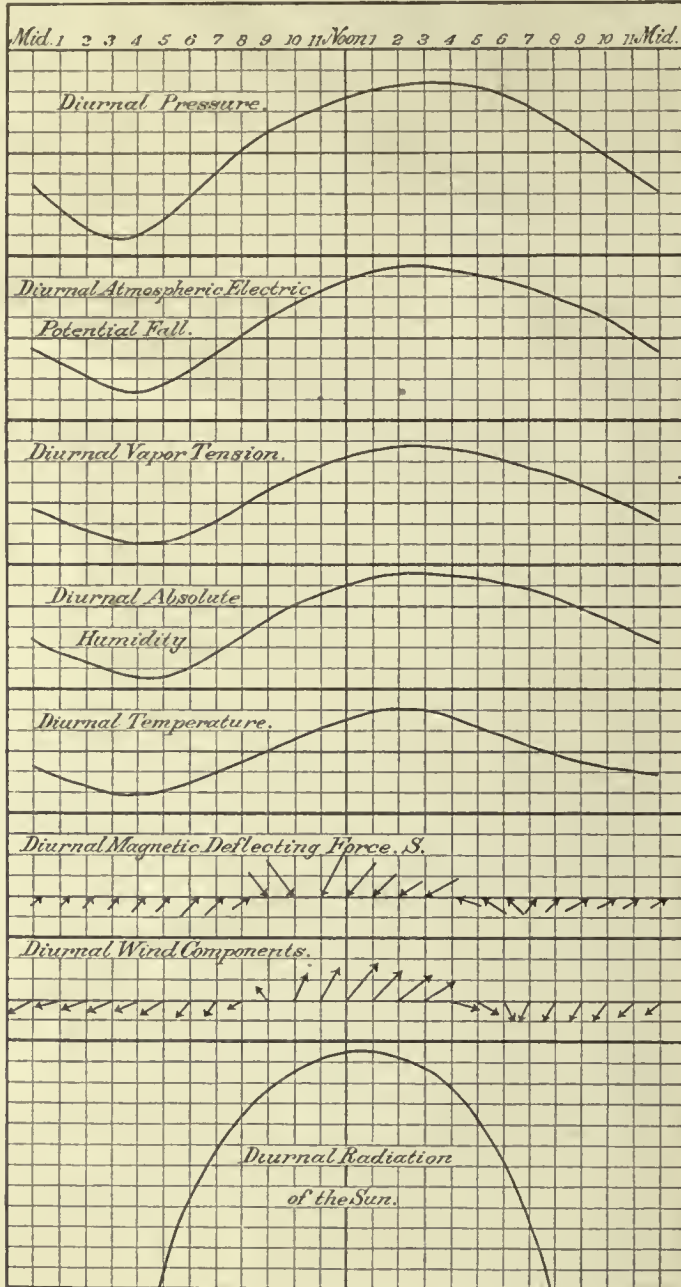 Mid. 1 2 3 4 5 6 7 8 9 10 11 Noon 1 2 3 4 5 6 7 8 9 10 11 Mid.
Diurnal Pressure.
Diurnal Atmospheric Electric
Potential Fall.
Diurnal Vapor Tension.
Diurnal Absolute
Humidity
Diurnal Temperature.
Diurnal Magnetic Deflecting Force. S.
Diurnal Wind Components.
Diurnal Radiation
of the Sun.